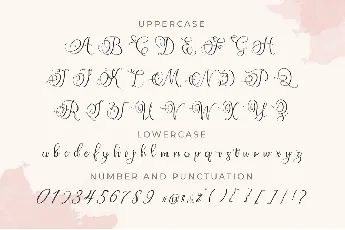 UPPERCASE
A B C D E F G H
I J K L M N O P Q
R S T U V W X Y Z
LOWERCASE
a b c d e f g h i j k l m n o p q r s t u v w x y z
NUMBER AND PUNCTUATION
0 1 2 3 4 5 6 7 8 9 # @ $ & % ( ) { } [ ] ! ?